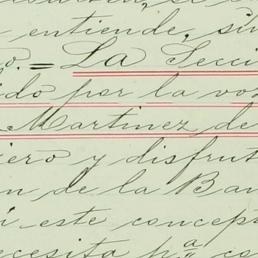 entiende, sin
o. = La Secci
ido por la vos
Martinez de
iero y disfrut
n de la Ban
este concept
ecesita pª co